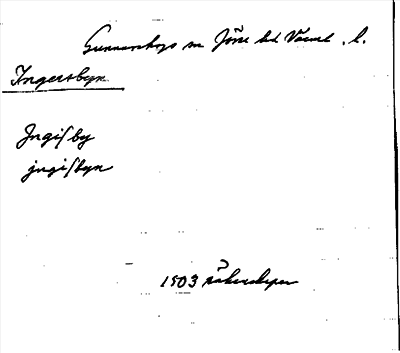 Gunnarskogs sn Jösse hd Värml. l.
Ingersbyn
Jngisby
jngisbyn
1503 räkenskaper